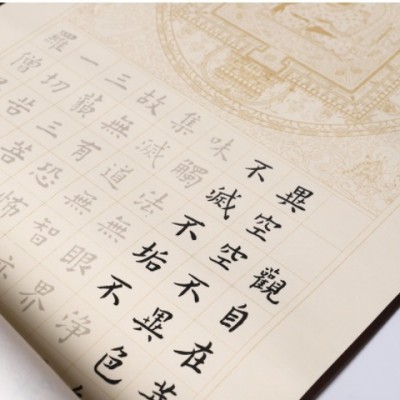 觀自在菩
異空空不異色
不滅不垢不淨
味觸法無眼界
集滅道無智亦
故無有恐怖
三藐三菩
一切苦
羅僧